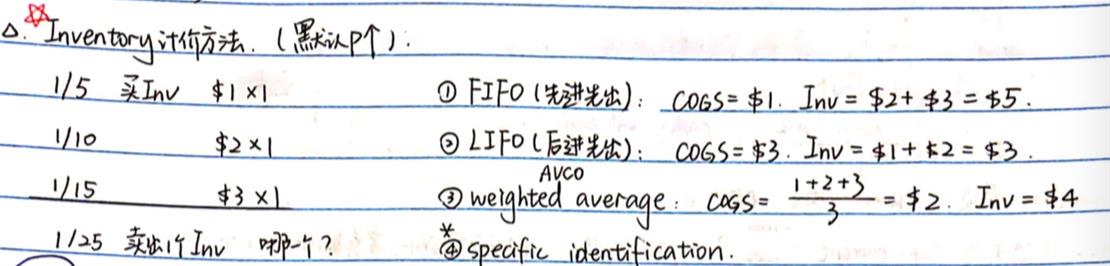 △. ☆ Inventory 计价方法. (黑默认P↑):
1/5 买Inv $1×1 ① FIFO (先进先出): COGS= $1. Inv = $2+ $3 = $5.
1/10 $2×1 ② LIFO (后进先出): COGS= $3. Inv = $1 + $2 = $3.
AVCO
1/15 $3×1 ③ weighted average: COGS= 1+2+3/3 = $2. Inv = $4
1/25 卖出1个Inv 哪一个? *④ specific identification.